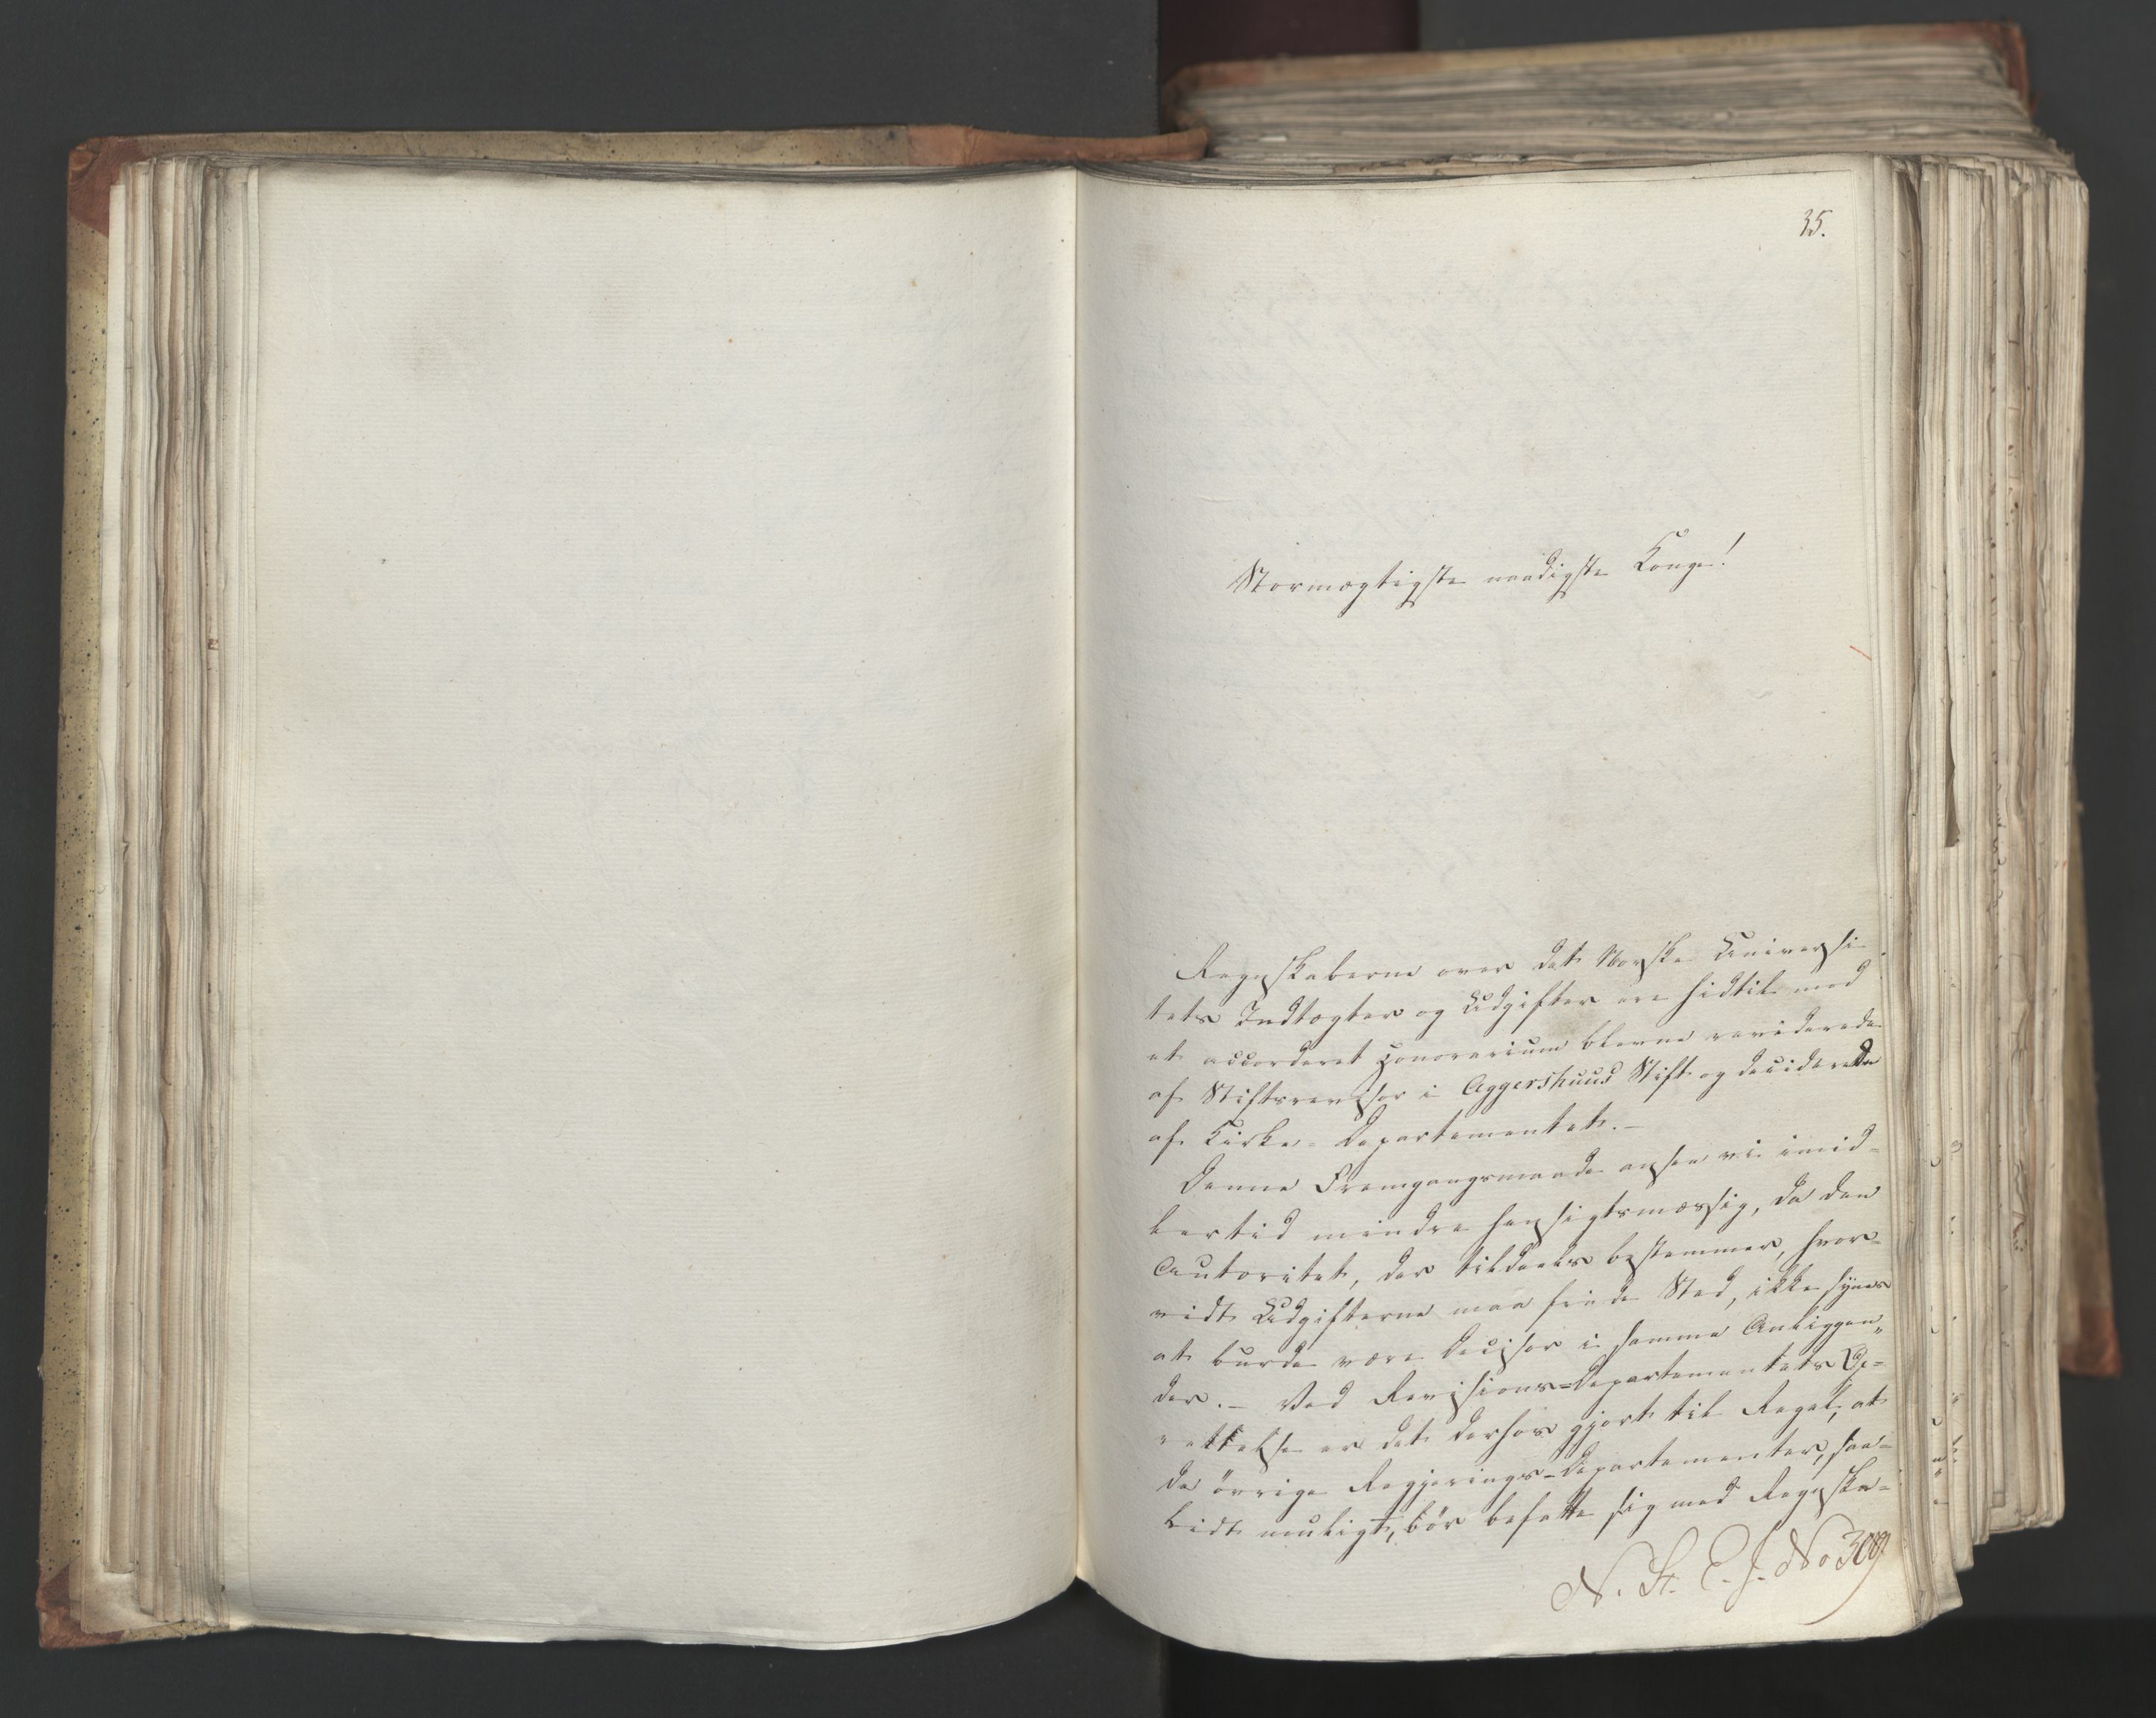 35.
Stormægtigste naadigste Konge!
Regnskaberne over det Norske Universi-
tets Indtægter og Udgifter ere hidtil mod
et accorderet Honorarium blevne reviderede
af Stiftsrevisor i Aggershuus Stift og deciderede
af Kirke-Departementet.-
Denne Fremgangsmaade ansee vi imid-
lertid mindre hensigtsmæssig, da den
Autoritet, der tildeels bestemmer, hvor-
vidt Udgifterne maa finde Sted, ikke synes
at burde være Decisor i samme Anliggen„
der.- Ved Revisions-Departementets Op-
rettelse er det derhos gjort til Regel, at
de övrige Regjerings-Departementer, saa-
vidt muligt, bör befatte sig med Regnska-
N. St. E. J. No 309.